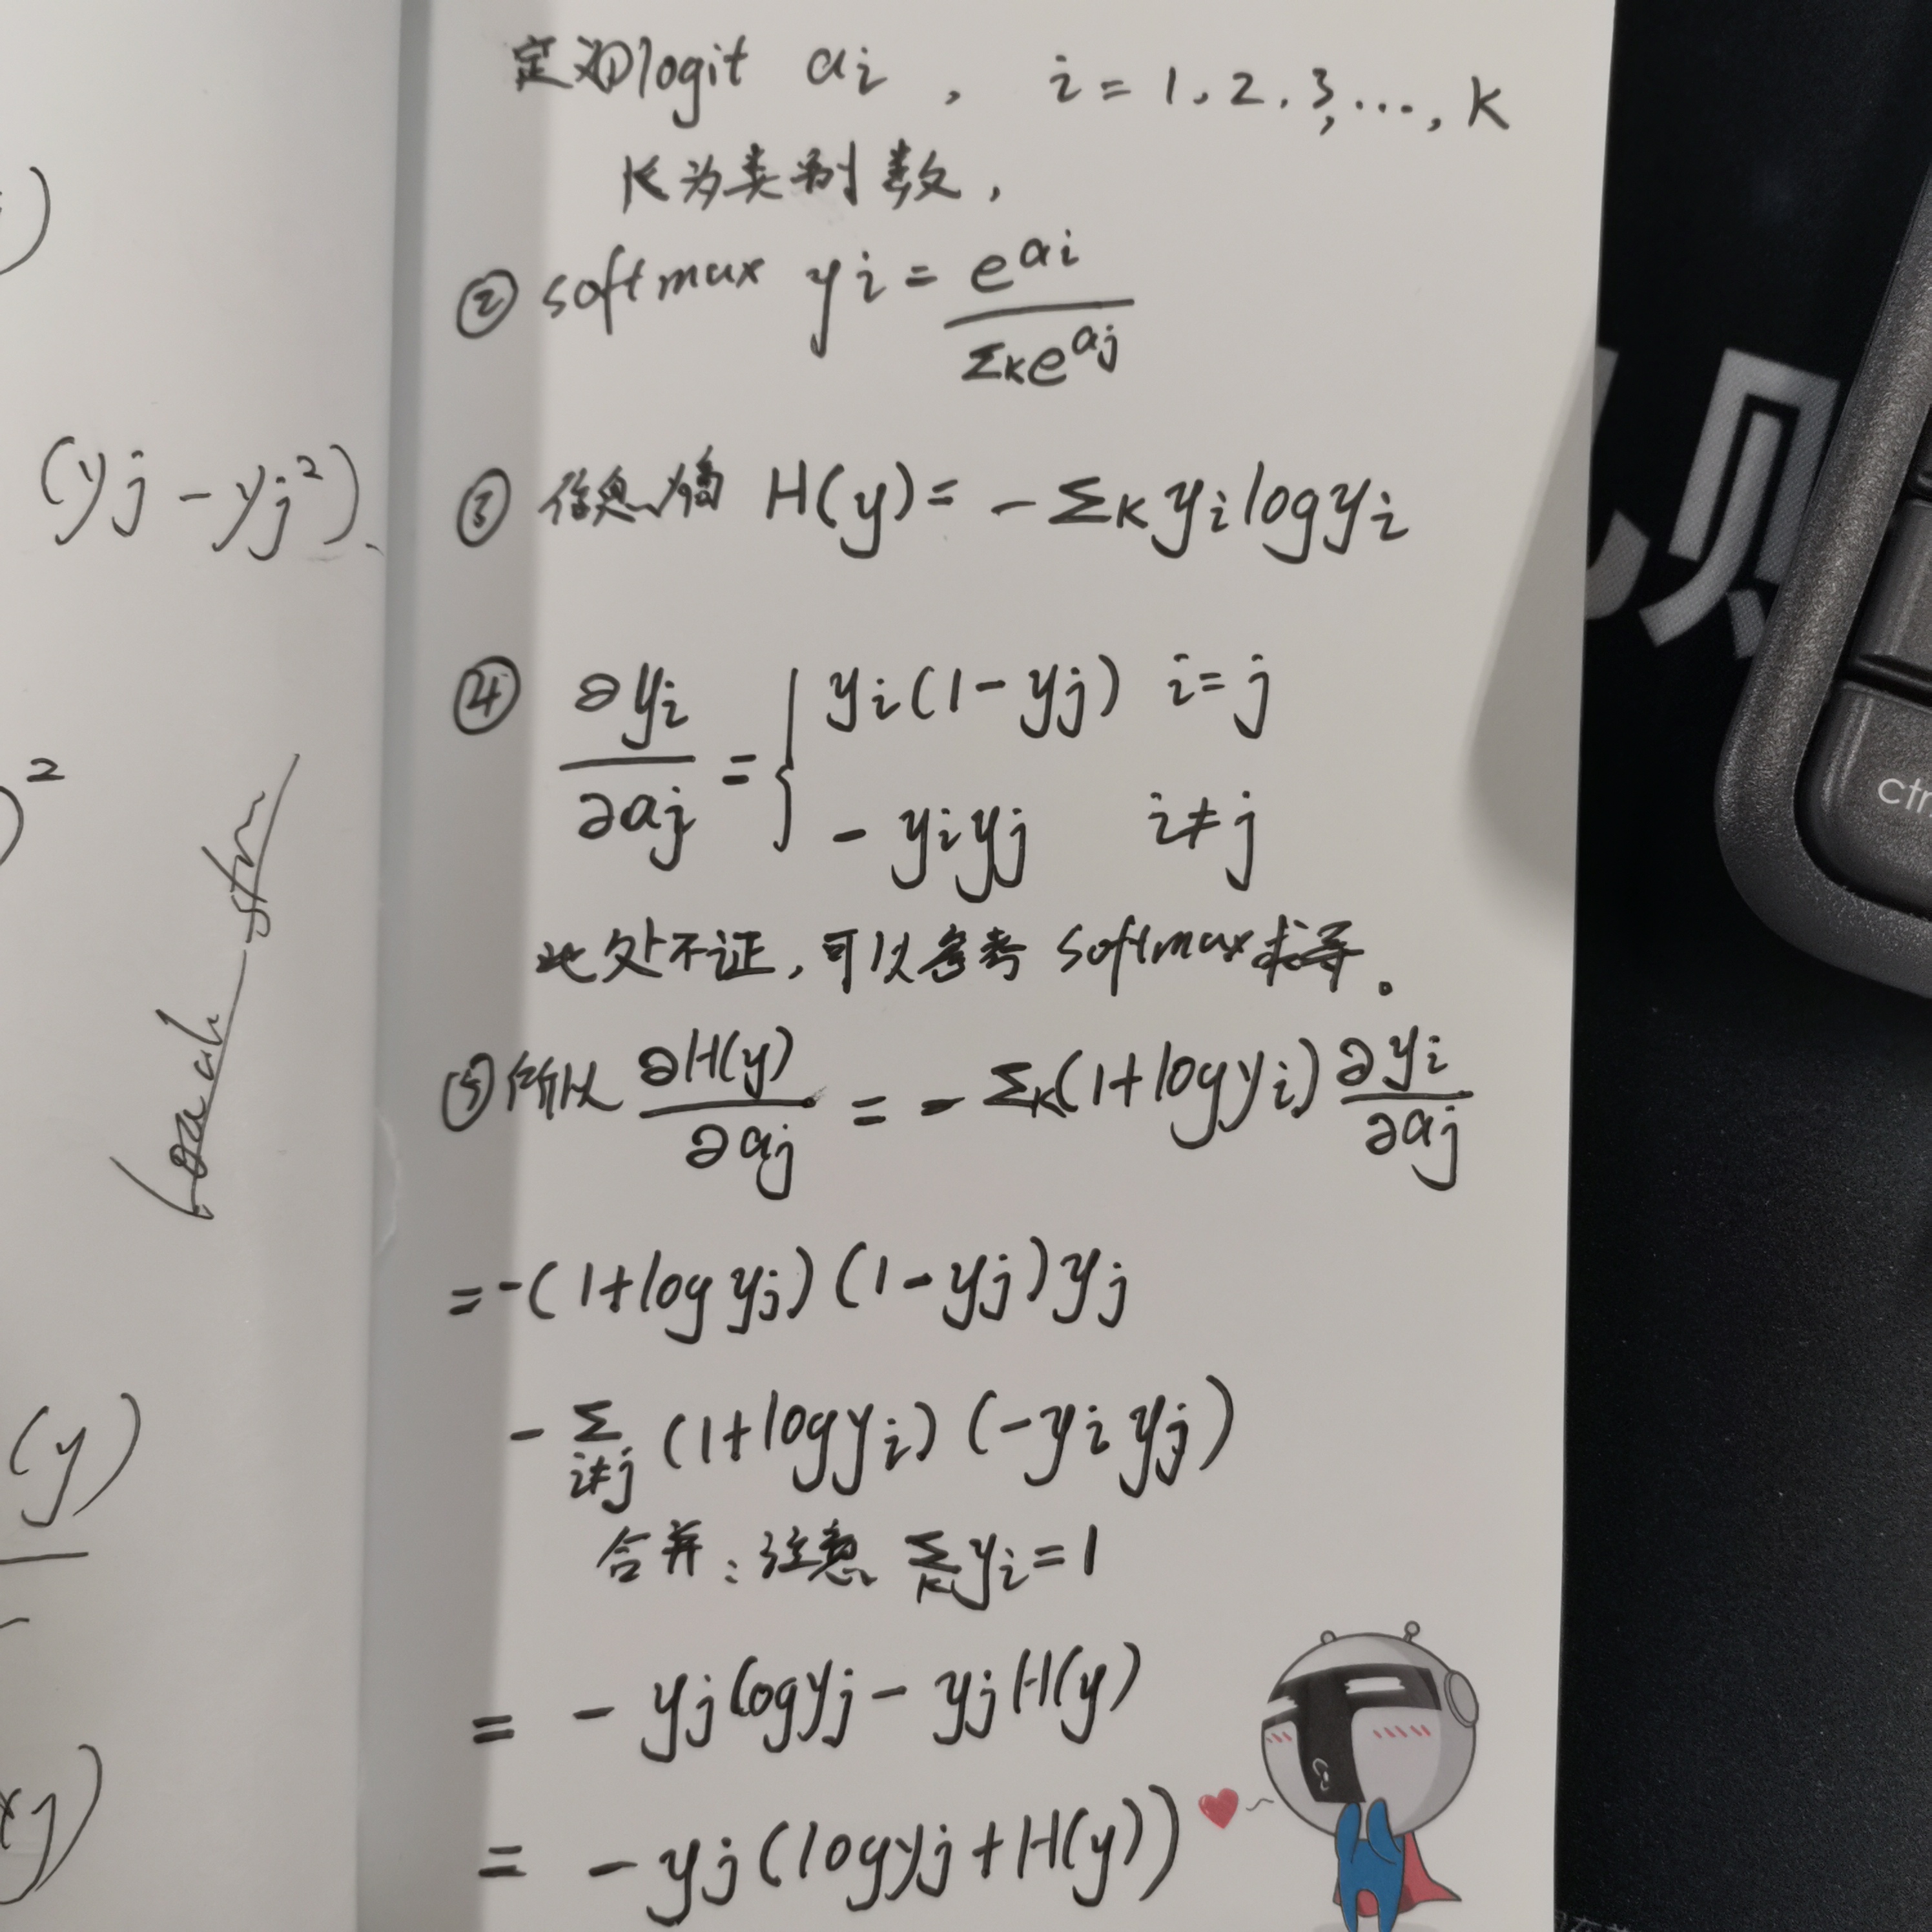 定义①logit ai, i=1,2,3,…,K
K为类别数,
② softmax yi = e^{ai} / Σ_K e^{aj}
③ 信息熵 H(y) = -Σ_K yi log yi
④ ∂yi/∂aj = { yi(1-yj) i=j
- yiyj i≠j
此处不证,可以参考 softmax求导.
⑤ 所以 ∂H(y)/∂aj = -Σ_K(1+log yi) ∂yi/∂aj
= -(1+log yj)(1-yj)yj
- Σ_{i≠j} (1+log yi)(-yi yj)
合并:注意 Σ_K yi=1
= - yj log yj - yj H(y)
= - yj(log yj + H(y))
(yj - yj²)
2
(y)
ctr
则